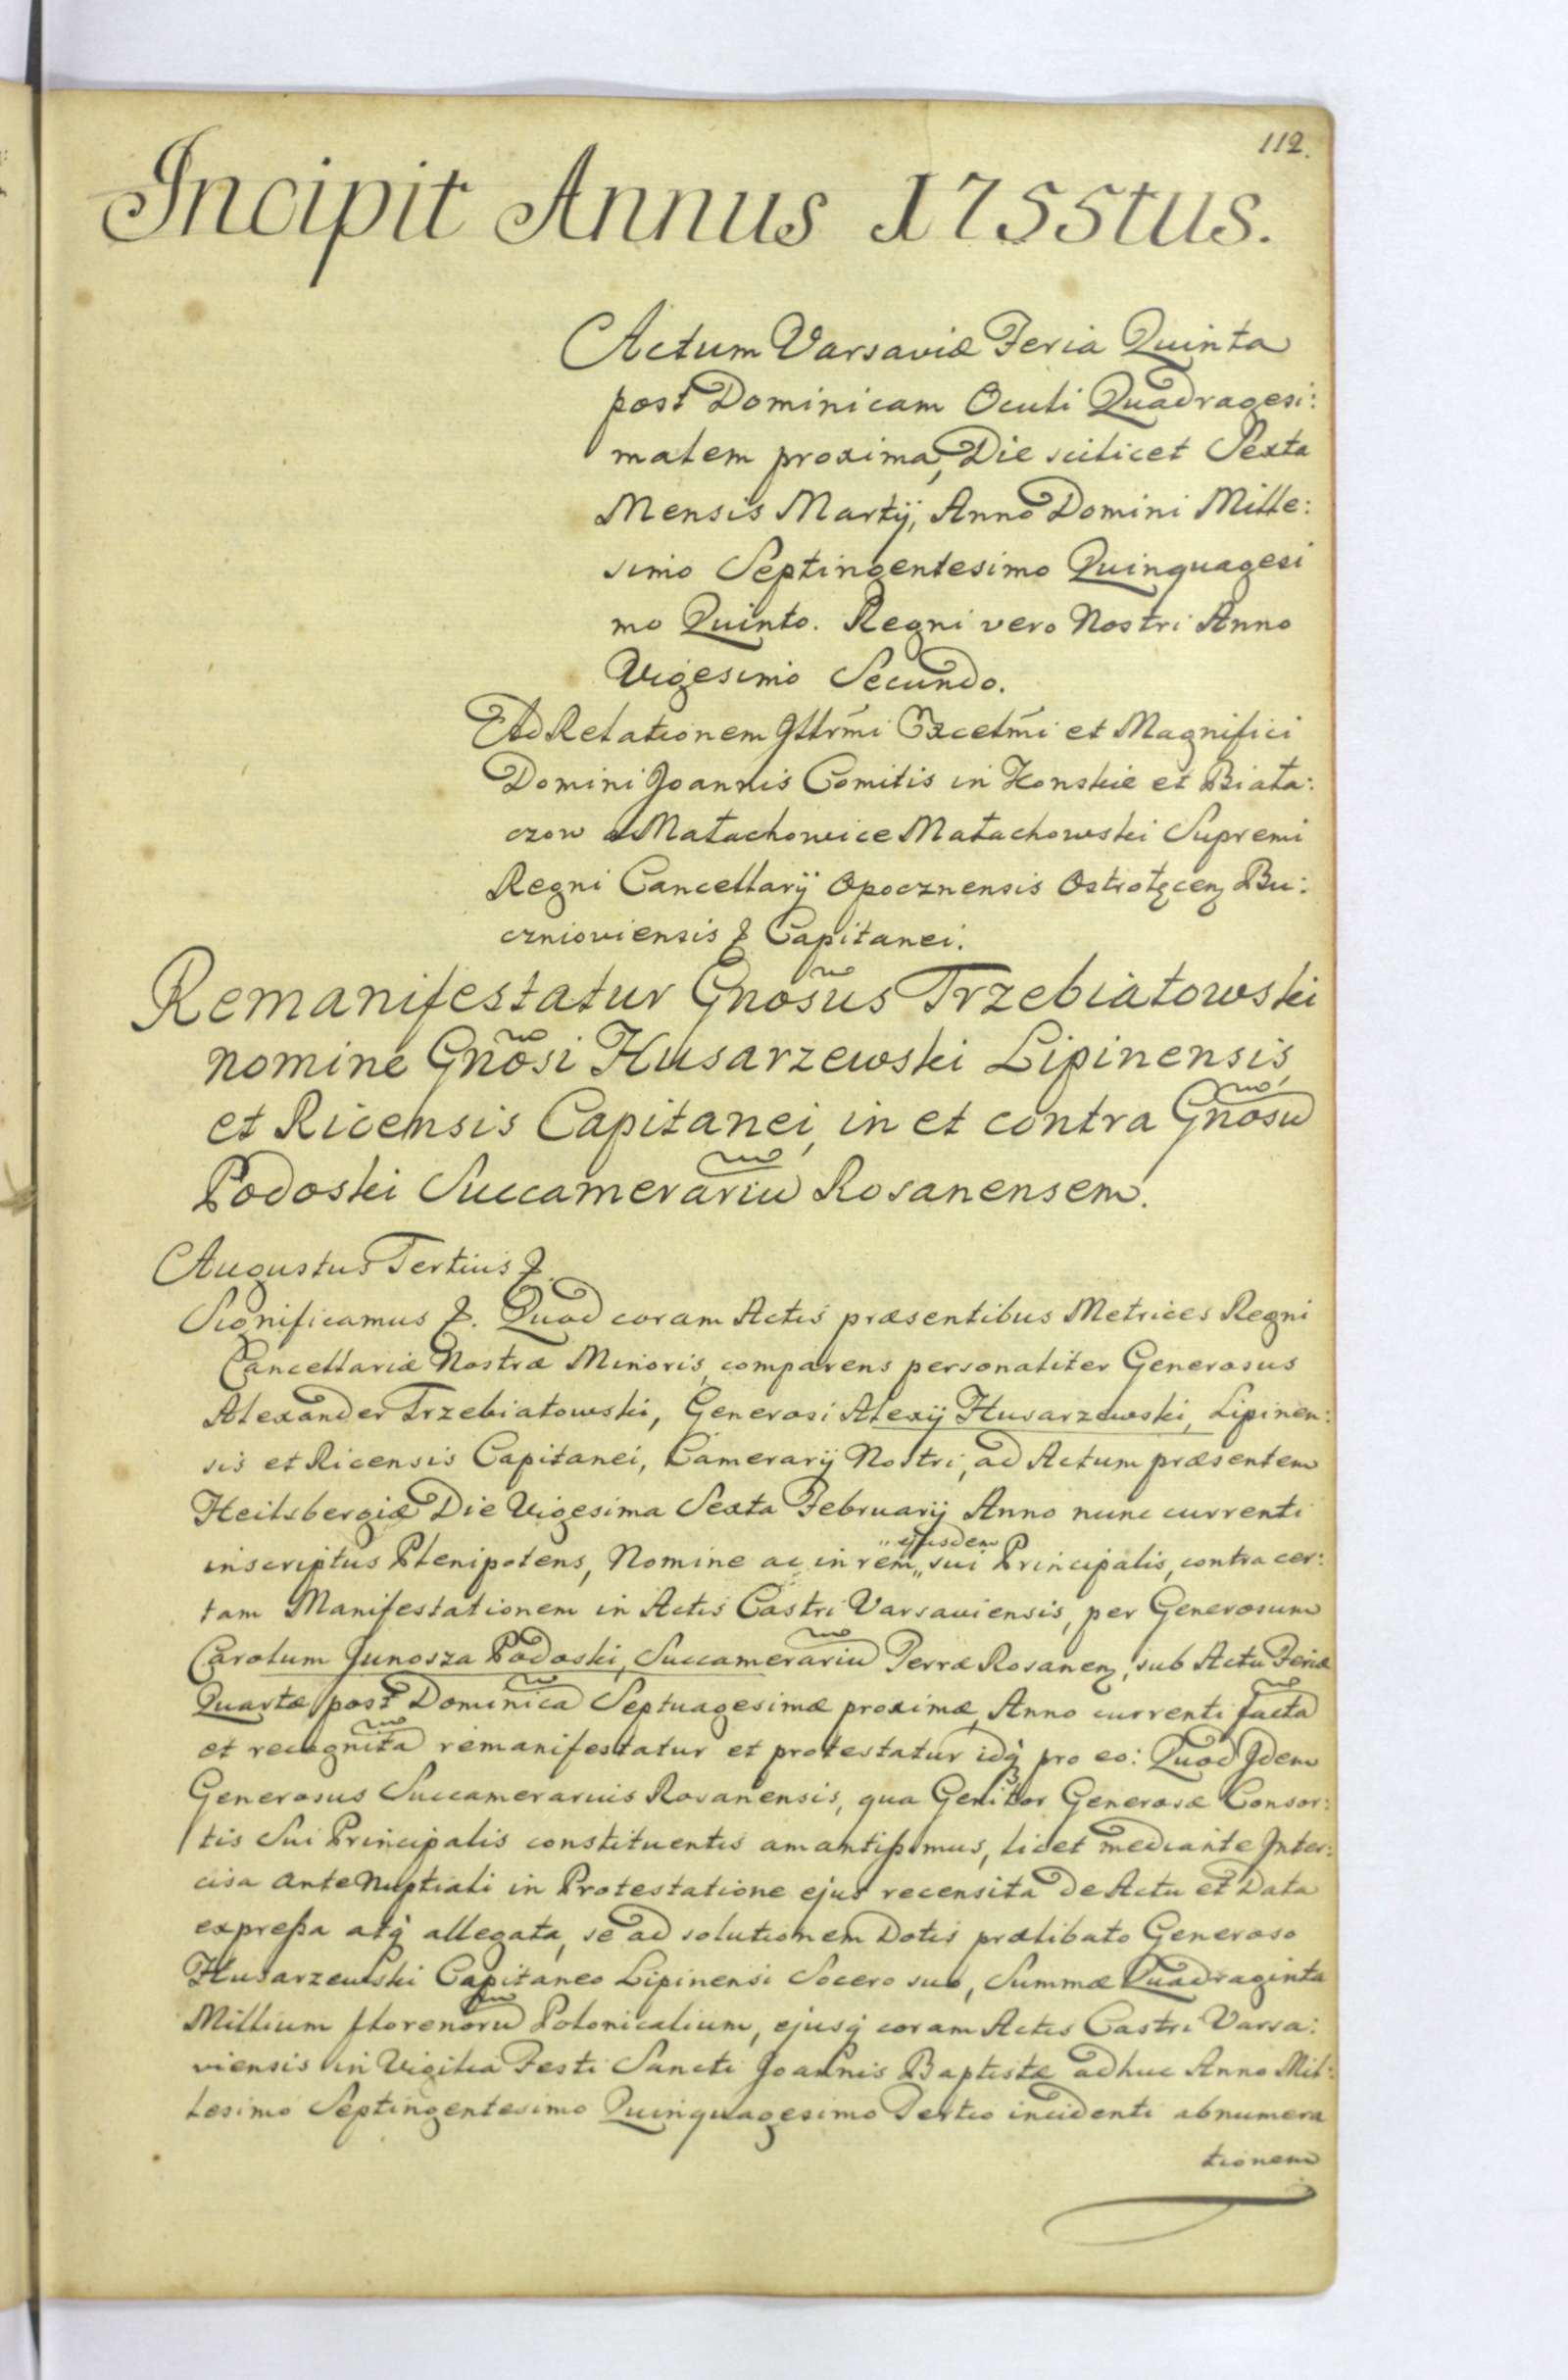 112.
Incipit Annus 1755tus.
Actum Varsaviæ Feria Quinta
post Dominicam Oculi Quadragesi:
malem proxima, Die scilicet Sexta
Mensis Martij, Anno Domini Mille:
simo Septingentesimo Quinquagesi
mo Quinto. Regni vero Nostri Anno
Vigesimo Secundo.
Ad Relationem Illrmi Excelmi et Magnifici
Domini Joannis Comitis in Konskie et Biała:
czow a Małachowice Małachowski Supremi
Regni Cancellarij Opocznensis Ostrołęcen Bu:
cznioviensis & Capitanei.
Remanifestatur Gnosus Trzebiatowski
nomine Gnosi Husarzewski Lipinensis
et Ricensis Capitanei, in et contra Gnosu
Podoski Succamerariu Rosanensem.
Augustus Tertius &.
Significamus &. Quod coram Actis præsentibus Metrices Regni
Cancellariæ Nostræ Minoris, comparens personaliter Generosus
Alexander Trzebiatowski, Generosi Alexij Husarzewski, Lipinen:
sis et Ricensis Capitanei, Camerarij Nostri, ad Actum præsentem
Heilsbergiæ Die Vigesima Sexta Februarij Anno nunc currenti
ejusdem
inscriptus Plenipotens, Nomine ac in rem,, sui Principalis, contra cer:
tam Manifestationem in Actis Castri Varsaviensis, per Generosum
Carolum Junosza Podoski, Succamerariu Terræ Rosanen, sub Actu Feriæ
Quartæ post Dominica Septuagesimæ proximæ, Anno currenti facta
et recognita remanifestatur et protestatur idq pro eo: Quod Idem
Generosus Succamerarius Rosanensis, qua Genitor Generosæ Consor:
tis Sui Principalis constituentis amantißimus, licet mediante Inter:
cisa ante Nuptiali in Protestatione ejus recensita de Actu et Data
expreßa atq allegata, se ad solutionem Dotis prælibato Generoso
Husarzewski Capitaneo Lipinensi Socero suo, Summæ Quadraginta
Millium florenoru Polonicalium, ejusq coram Actis Castri Varsa:
viensis in Vigilia Festi Sancti Joannis Baptistæ adhuc Anno Mil:
lesimo Septingentesimo Quinquagesimo Tertio incidenti abnumera
tionem